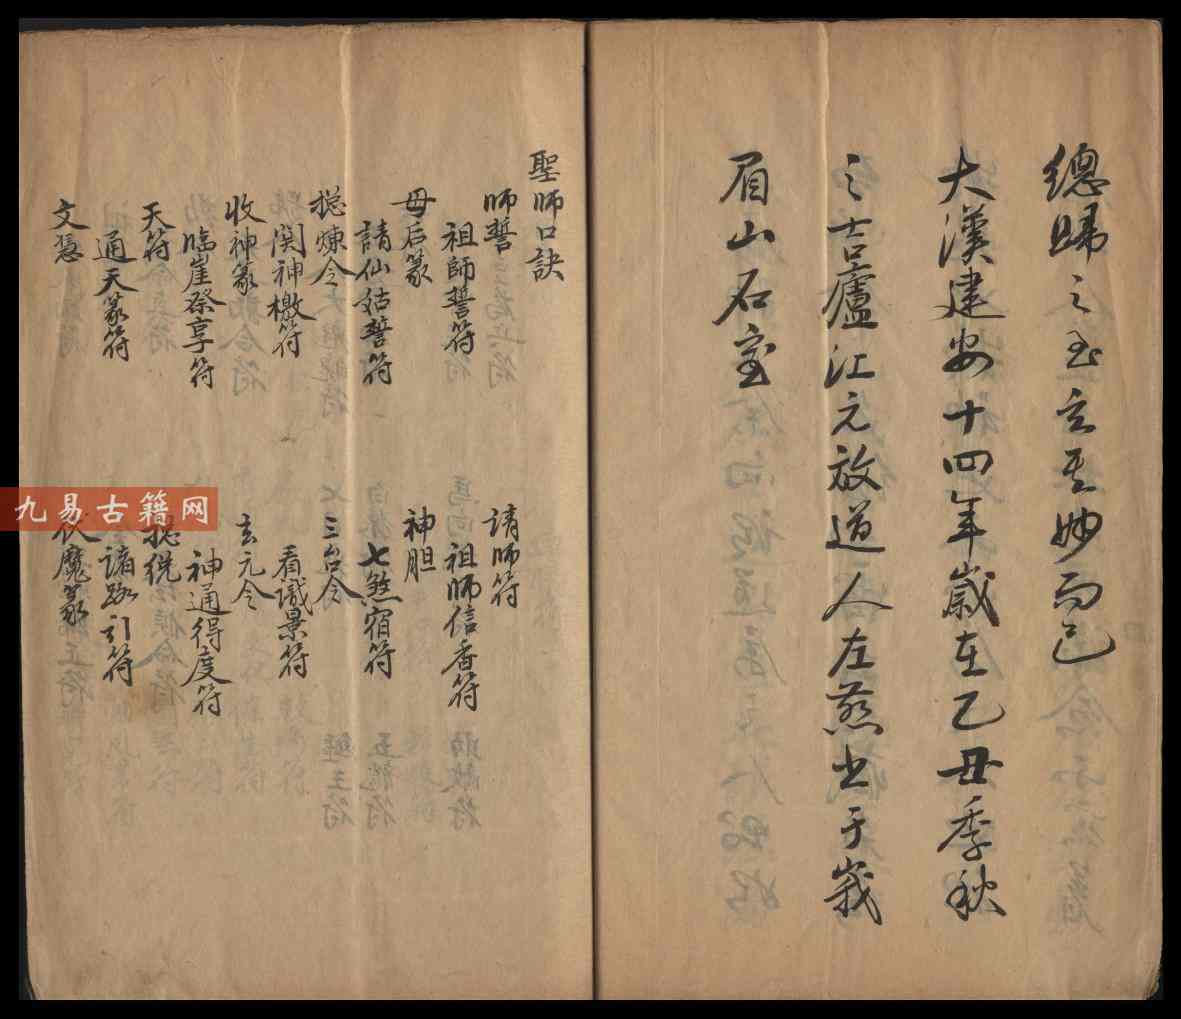 總歸之至玄至妙而已
大漢建安十四年歲在乙丑季秋
之吉廬江元放道人左慈书于峩
眉山石室
聖師口訣
師誓 請師符
祖師誓符 祖师信香符
母后篆 神胆
請仙姑誓符 七煞宿符
捴煉令 三台令
関神檄符 看讖景符
收神篆 玄元令
臨崖祭享符 神通得度符
天符 捴
通天篆符 諸路引符
文憑 伏魔篆
九易古籍网